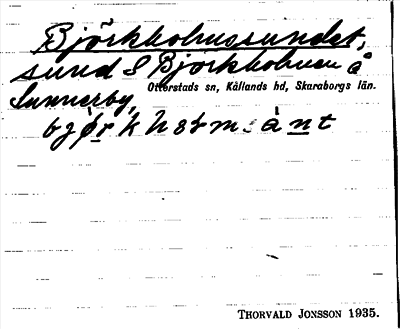 Björkholmssundet,
sund S Björkholmen å
Sunnerby,
Otterstads sn, Kållands hd, Skaraborgs län.
THORVALD JONSSON 1935.